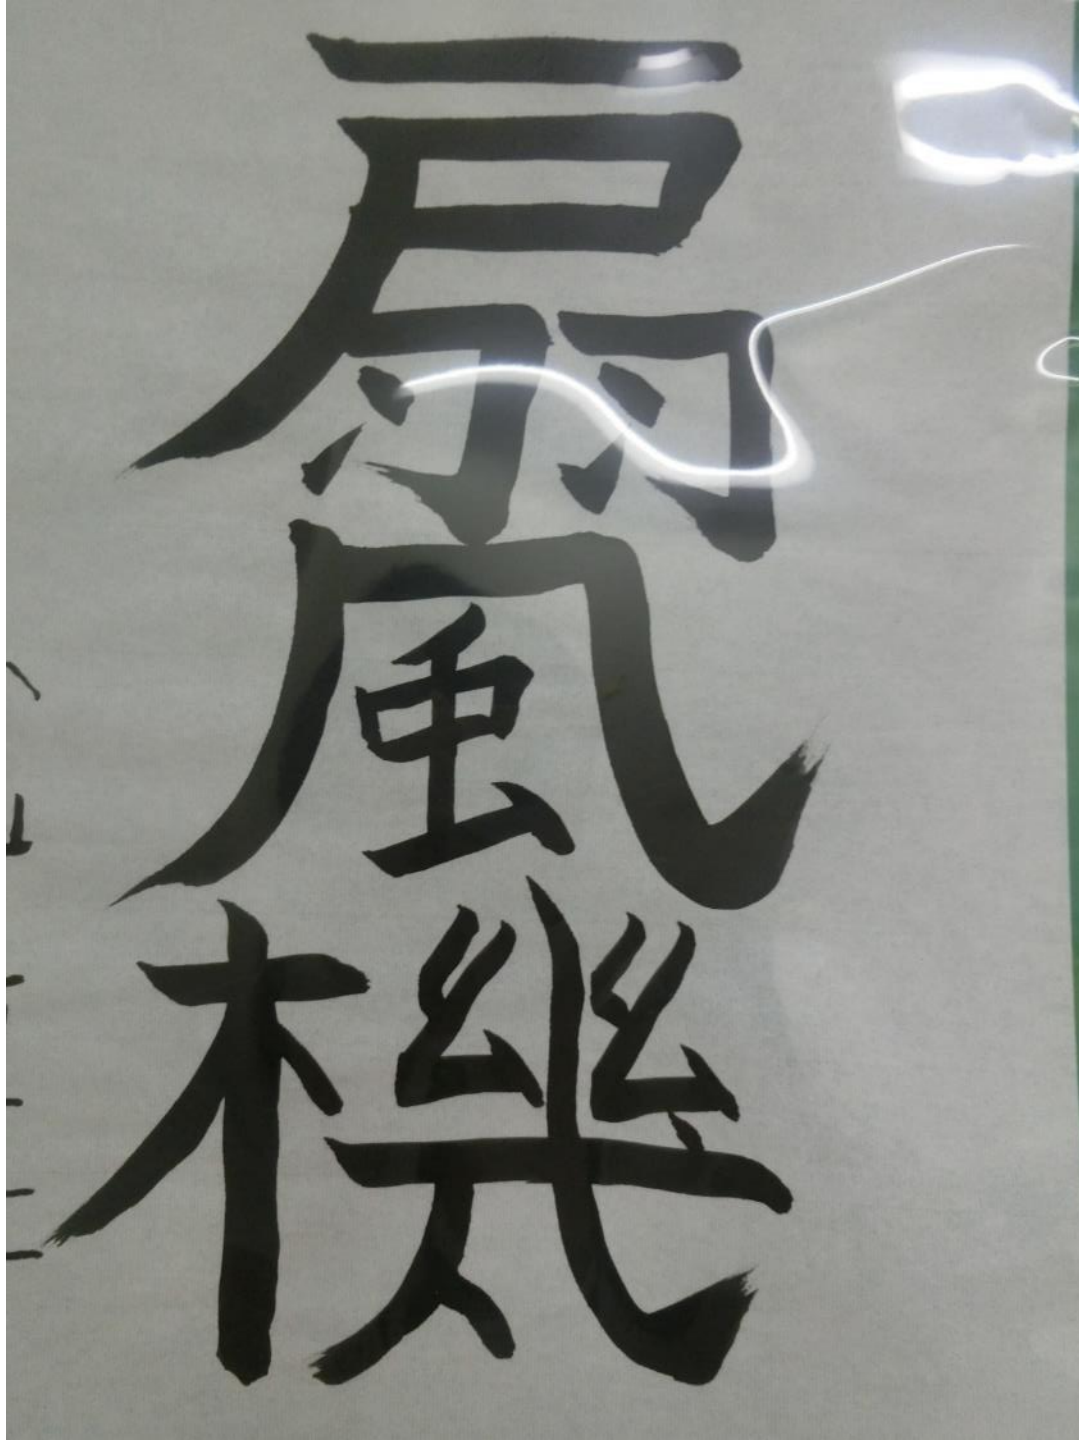 扇風機